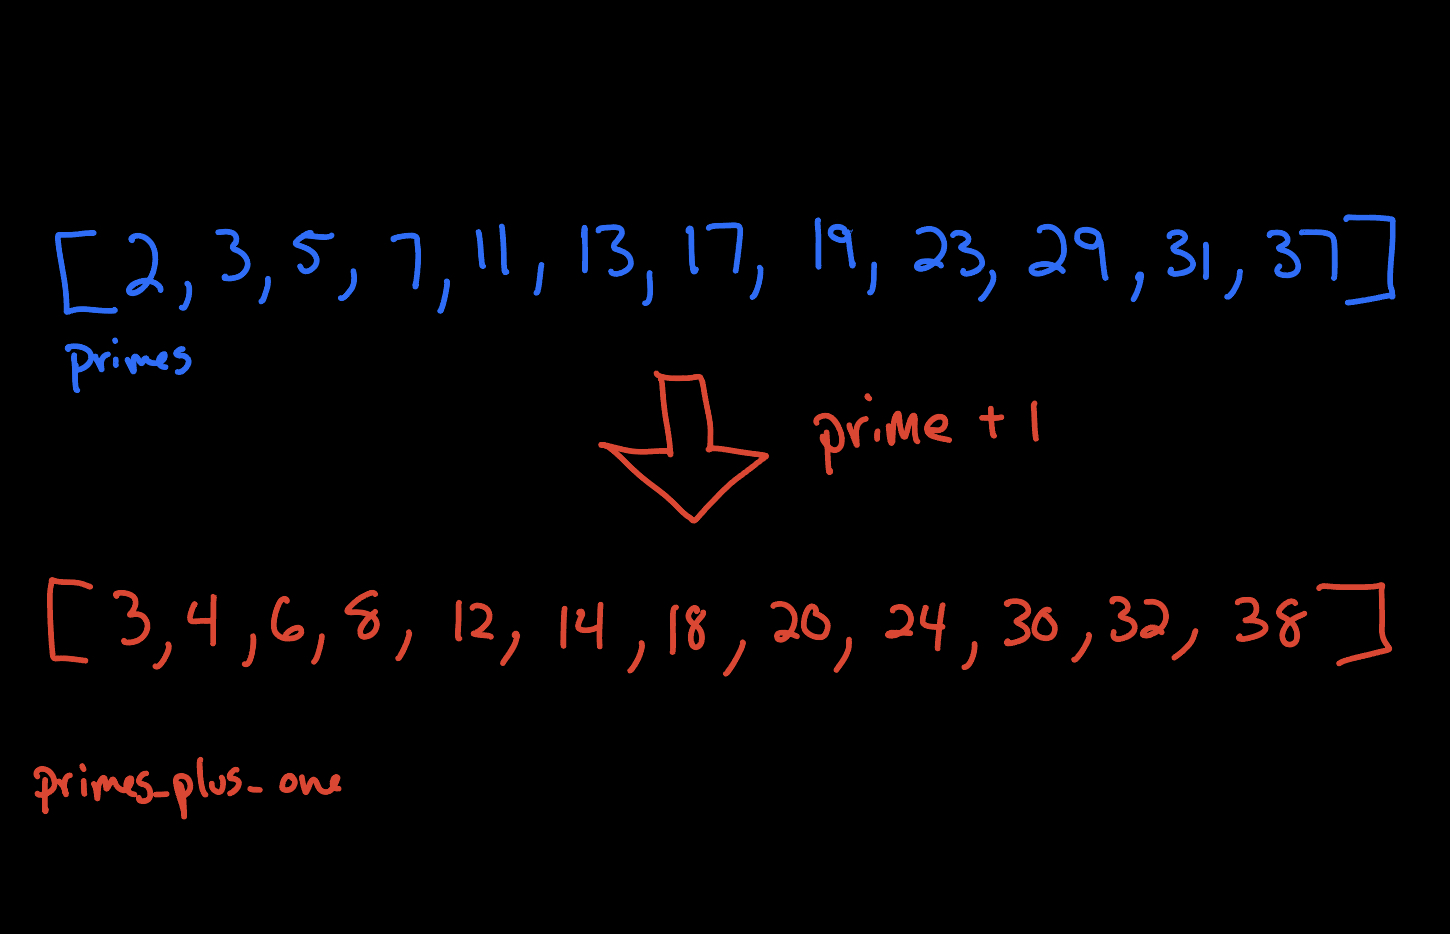 [2, 3, 5, 7, 11, 13, 17, 19, 23, 29, 31, 37]
primes
prime + 1
[3, 4, 6, 8, 12, 14, 18, 20, 24, 30, 32, 38]
primes_plus_one